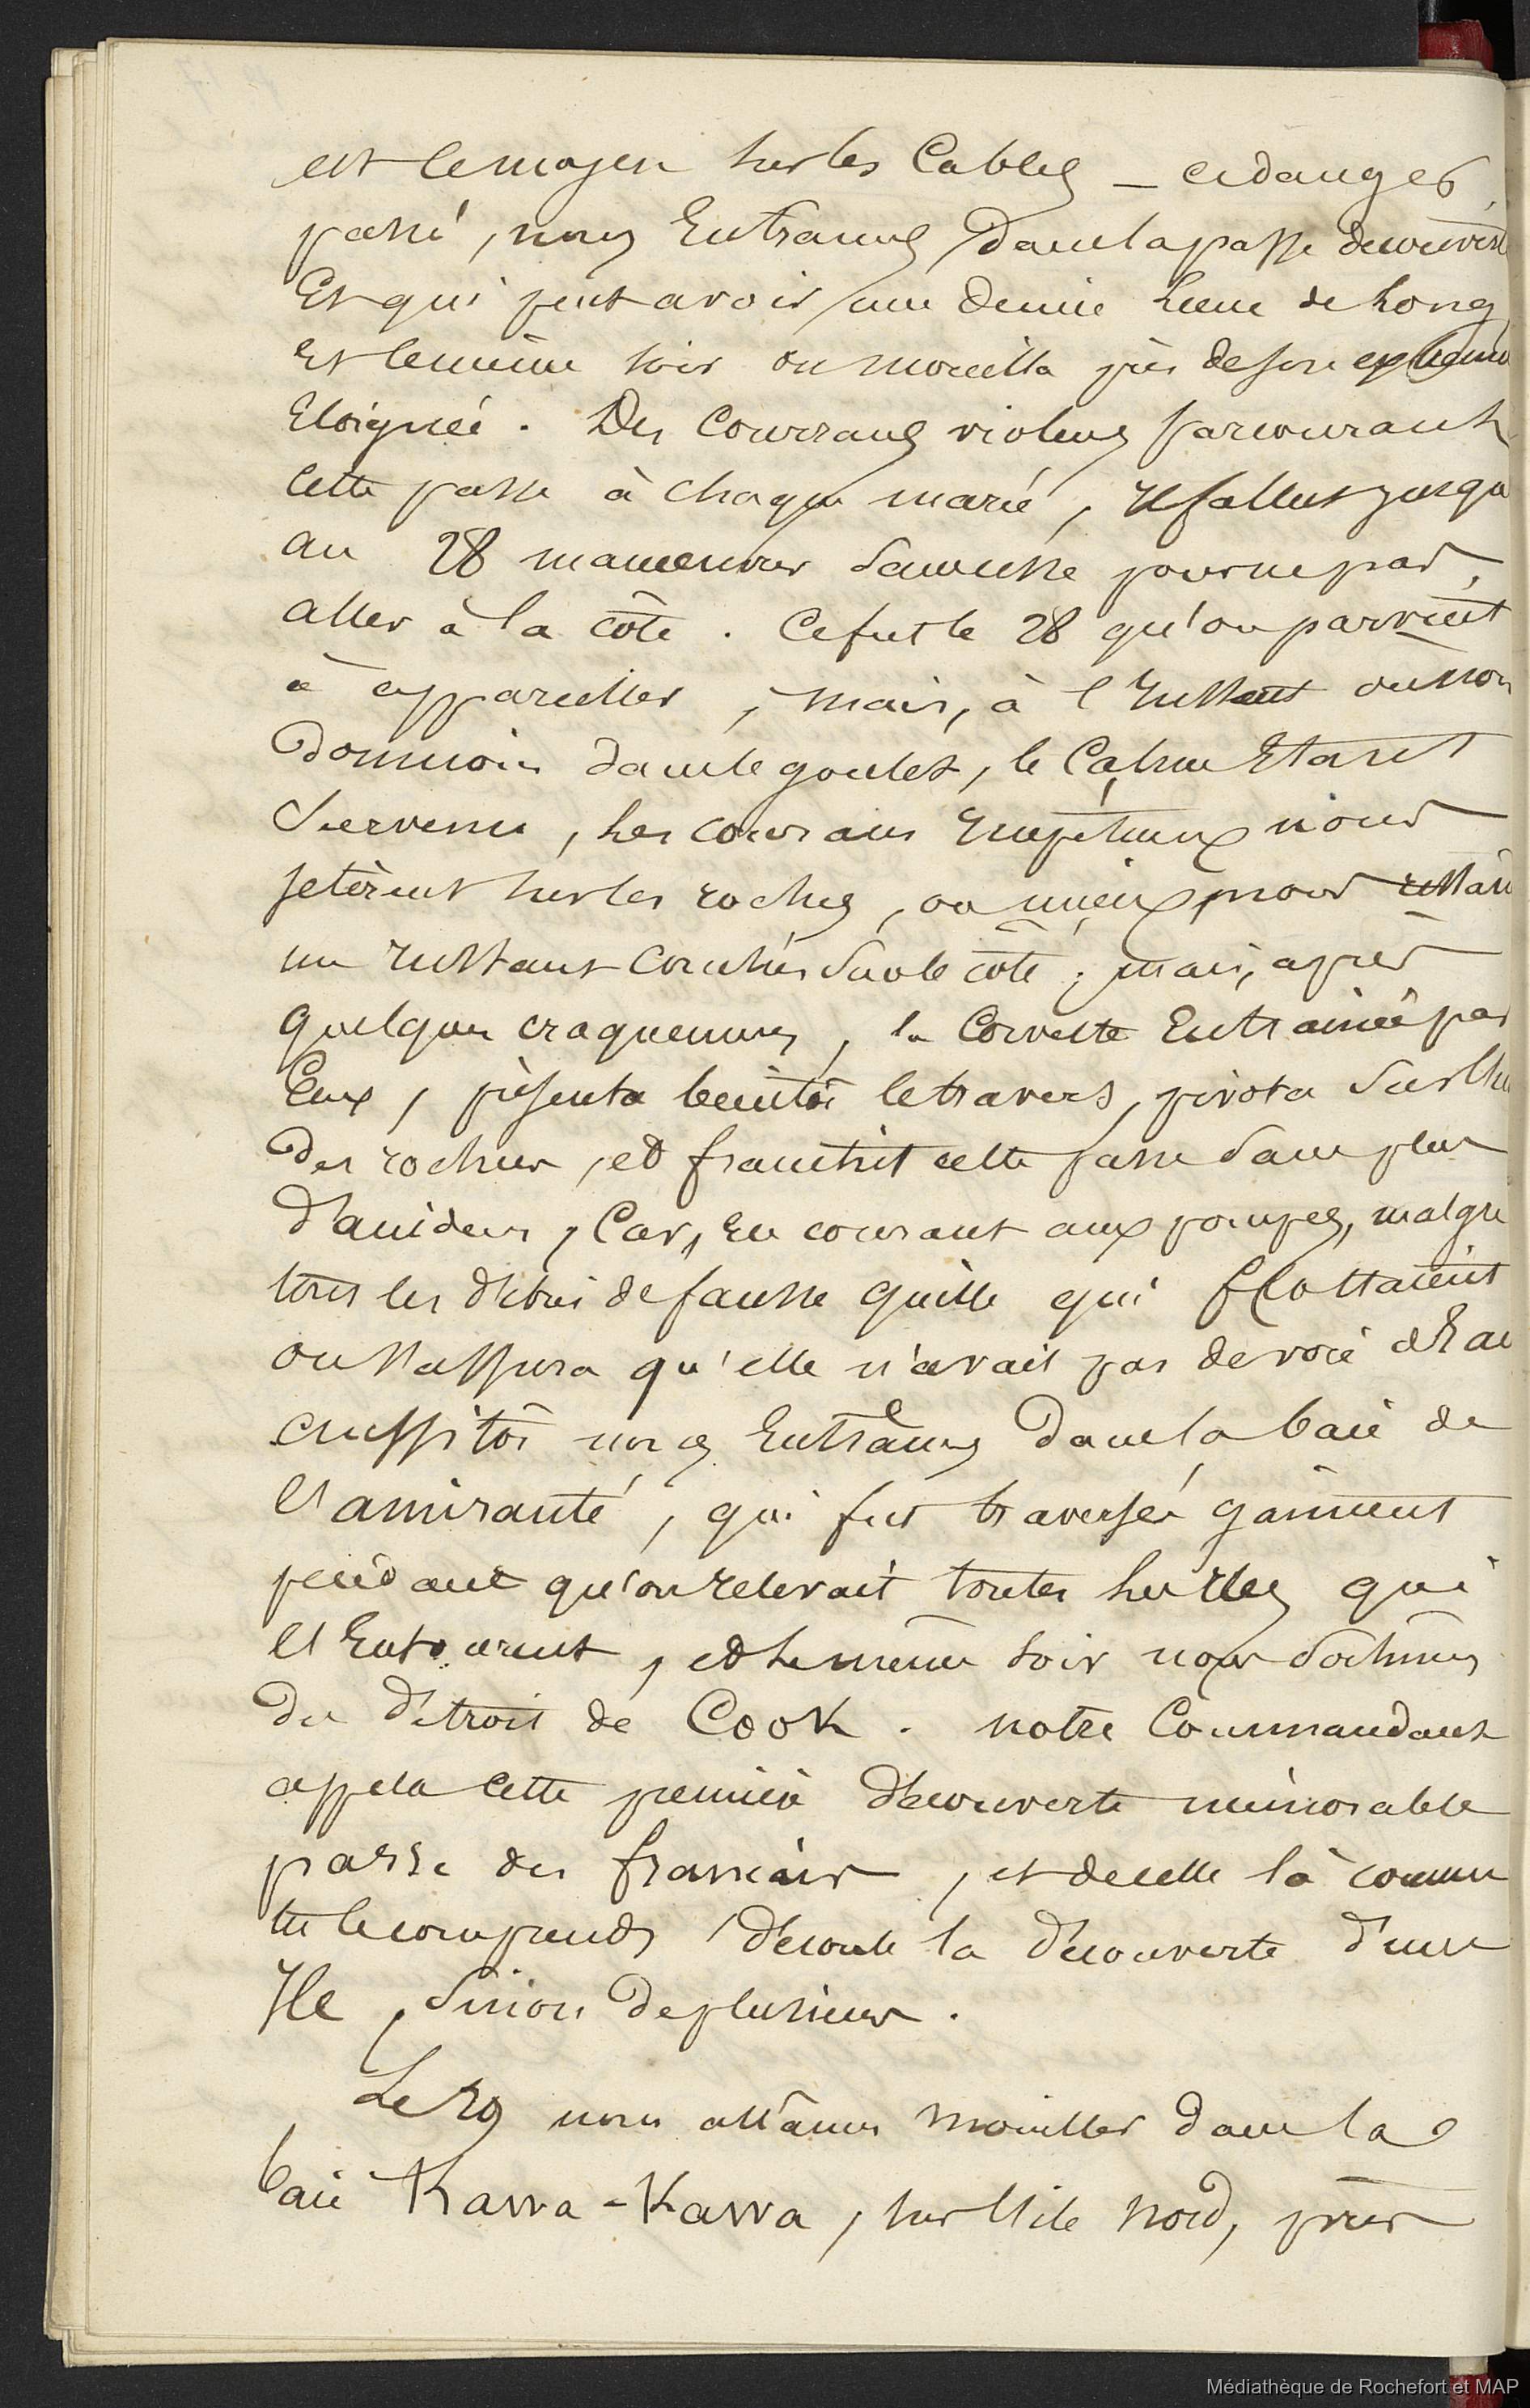 est le moyen sur les Cables — ce danger
passé, nous Entrames dans la passe decouverte
Et qui peut avoir une demie lieue de long
Et le même soir on mouilla près de son
Eloignée. Des Courrans violens parcourant
cette passe à chaque marée, il fallut jusqu
au 28 manoeuvrer sans cesse pour ne pas
aller à la côte. Ce fut le 28 qu'on parvint
à appareiller, mais, à l'Instant où nous
donnions dans le goulet, le Calme Etant
survenu, les courans Impétueux nous
jetèrent sur les roches, ou mieux, nous
un Instant couchés sur le côté; mais, après
quelques craquemens, la Corvette Entrainée par
Eux, présenta bientôt le travers, pivota sur l'un
des rochers, et franchit cette passe sans plus
d'avidens, Car, En courant aux pompes, malgré
tous les débris de fausse quille qui flottaient
on s'assura qu'elle n'avait pas de voie d'Eau
aussitôt nous Entrâmes dans la baie de
l'amirauté, qui fut traversée gaîment
pendant qu'on relevait toutes les Iles qui
l'Entourent, et le même soir nous sortimes
du détroit de Cook. notre Commandant
appela cette première découverte mémorable
passe des français, et de celle là comme
tu le comprends découle la découverte d'une
Ile, sinon de plusieurs.
Le 29 nous allâmes mouiller dans la
baie Kawa-Kawa, sur l'île Nord, près
Médiathèque de Rochefort et MAP